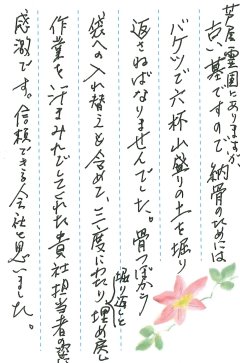 芦屋霊園にありますが、
古い墓ですので、納骨のためには
バケツで六杯山盛りの土を掘り
返さねばなりませんでした。骨つぼから
袋への入れ替えも含めて、三度にわたり埋め戻し
掘り返しと
作業を汗まみれでしてくれた貴社担当者の姿に
感激です。信頼できる会社と思いました。